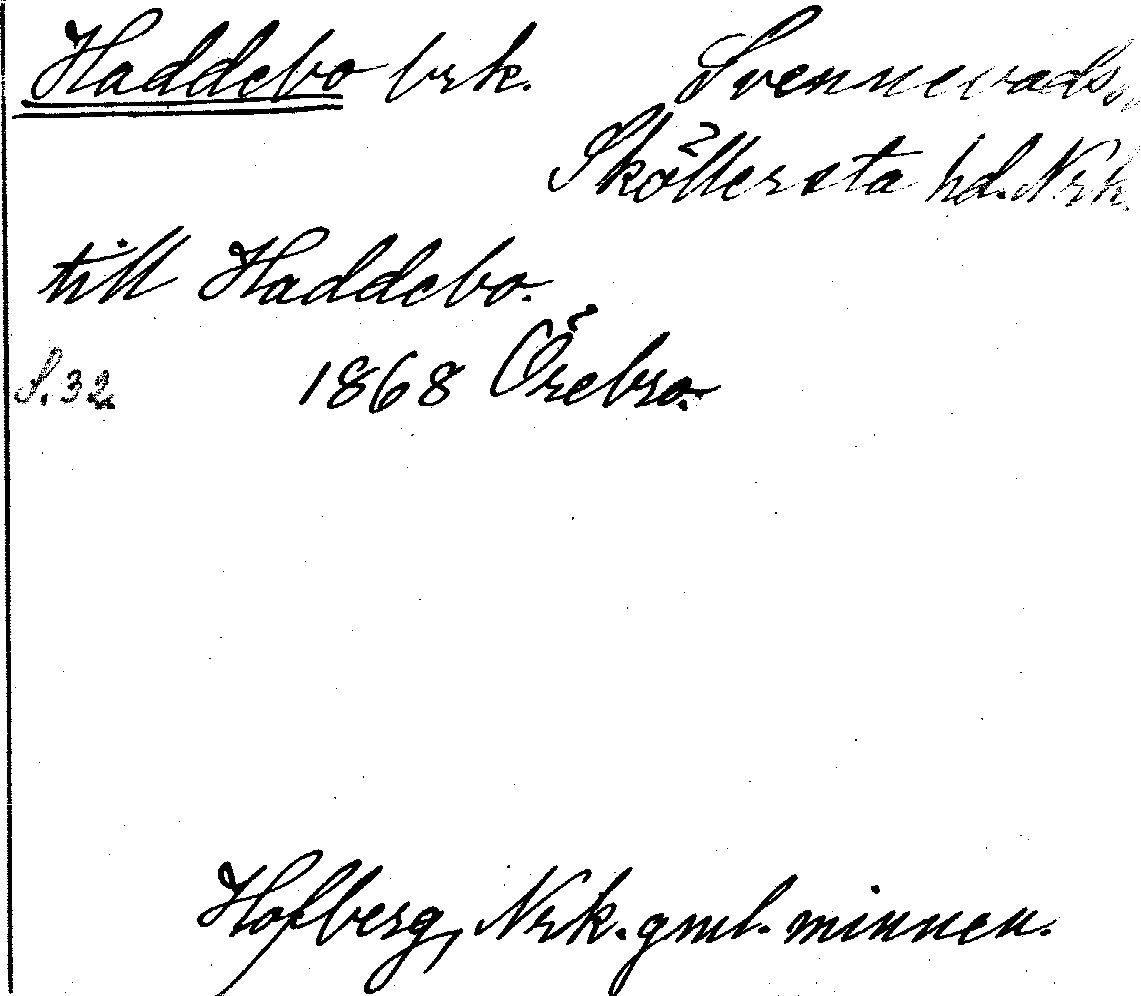 Haddebo brk. Svennevads,
Sköllersta hd. Nrk.
till Haddebo.
S. 32 1868 Örebro.
Hofberg, Nrk. gml. minnen.